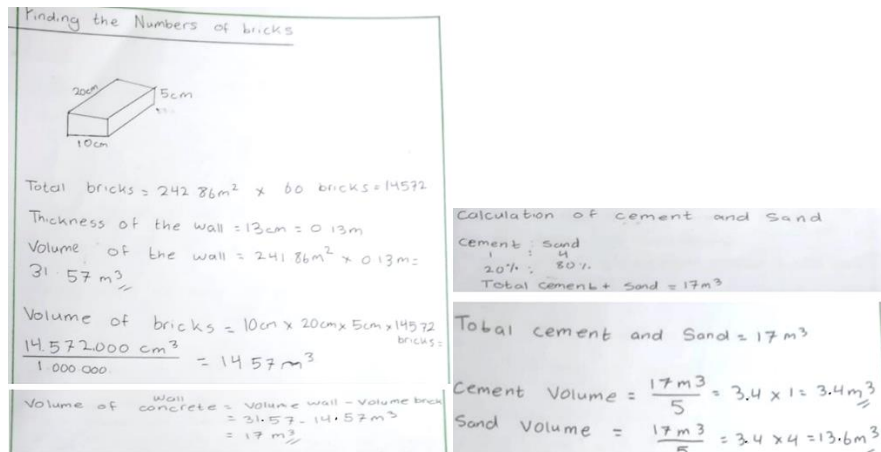 Finding the Numbers of bricks
20cm
5cm
10cm
Total bricks = 242 86m² x 60 bricks = 14572
Thickness of the wall = 13cm = 0 13m
Volume of the wall = 241 86m² x 0 13m =
31.57 m³
Volume of bricks = 10cm x 20cm x 5cm x 14572
bricks =
14.572.000 cm³
1 000 000.
= 14 57 m³
Volume of wall concrete = Volume wall - Volume brick
= 31.57 - 14.57m³
= 17 m³
Calculation of cement and Sand
Cement : Sand
1 : 4
20% : 80%
Total Cement + Sand = 17m³
Total cement and Sand = 17 m³
Cement Volume = 17 m3 / 5 = 3.4 x 1 = 3.4m3
Sand Volume = 17 m3 / 5 = 3.4 x 4 = 13.6m3